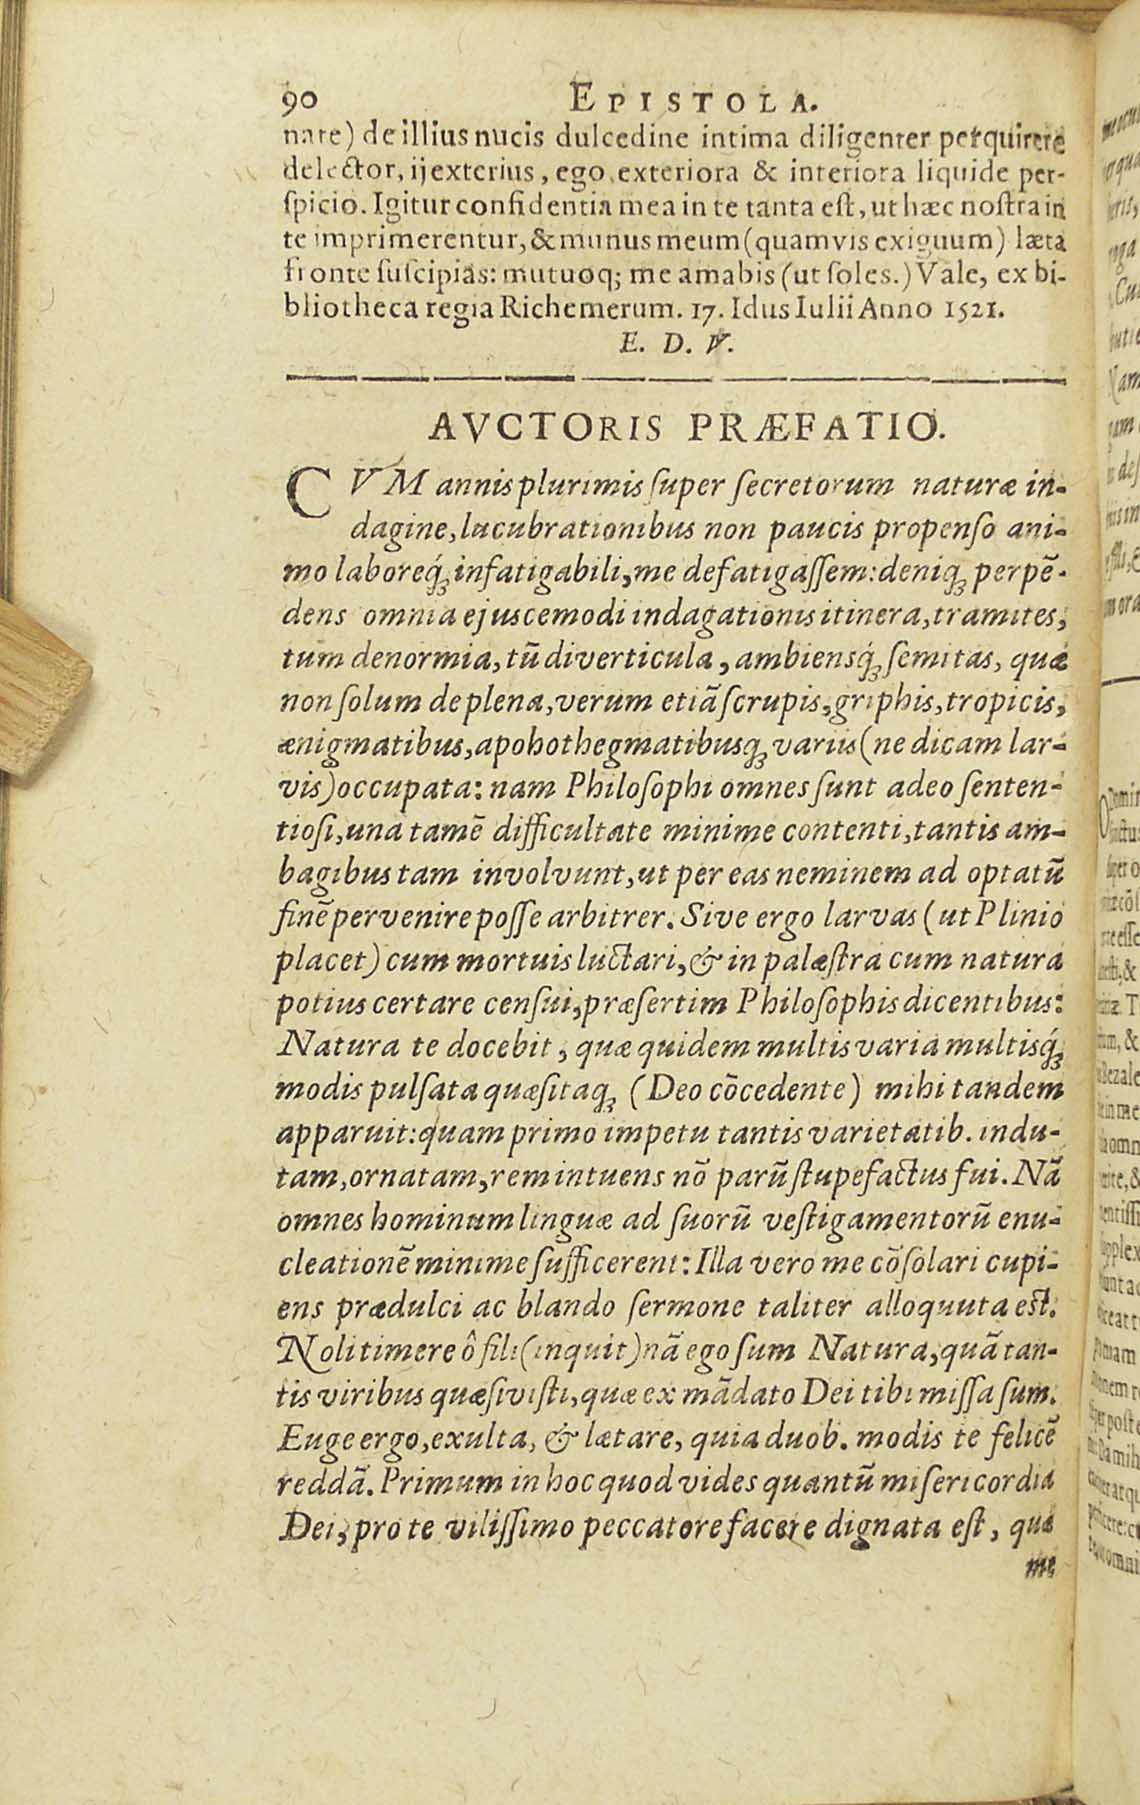 90 EPISTOLA.
nare) de illius nucis dulcedine intima diligenter perquirere
delector, ij exterius, ego exteriora & interiora liquide per-
ſpicio. Igitur confidentia mea in te tanta eſt, ut hæc noſtra in
te imprimerentur, & munus meum (quamvis exiguum) læta
fronte ſuſcipias: mutuoq; me amabis (ut ſoles.) Vale, ex bi-
bliotheca regia Richemerum. 17. Idus Iulii Anno 1521.
E. D. V.
AVCTORIS PRÆFATIO.
CVM annis plurimis ſuper ſecretorum naturæ in-
dagine, lucubrationibus non paucis propenſo ani-
mo laboreq́; infatigabili, me defatigaſſem: deniq; perpẽ-
dens omnia ejuscemodi indagationis itinera, tramites,
tum denormia, tũ diverticula, ambiensq́; ſemitas, quæ
non ſolum de plena, verum etiã ſcrupis, griphis, tropicis,
ænigmatibus, apohothegmatibusq; variis (ne dicam lar-
vis) occupata: nam Philoſophi omnes ſunt adeo ſenten-
tioſi, una tamẽ difficultate minime contenti, tantis am-
bagibus tam involvunt, ut per eas neminem ad optatũ
finẽ pervenire poſſe arbitrer. Sive ergo larvas (ut Plinio
placet) cum mortuis luctari, & in palæſtra cum natura
potius certare cenſui, præſertim Philoſophis dicentibus:
Natura te docebit, quæ quidem multis varia multisq́;
modis pulſata quæſitaq; (Deo cõcedente) mihi tandem
apparuit: quam primo impetu tantis varietatib. indu-
tam, ornatam, rem intuens nõ parũ ſtupefactus fui. Nã
omnes hominum linguæ ad ſuorũ veſtigamentorũ enu-
cleationẽ minime ſufficerent: Illa vero me cõſolari cupi-
ens prædulci ac blando ſermone taliter alloquuta eſt.
Noli timere ô fili (inquit) nã ego ſum Natura, quã tan-
tis viribus quæſiviſti, quæ ex mãdato Dei tibi miſſa ſum.
Euge ergo, exulta, & lætare, quia duob. modis te felicẽ
reddã. Primum in hoc quod vides quantũ miſericordia
Dei, pro te viliſſimo peccatore facere dignata eſt, quæ
me